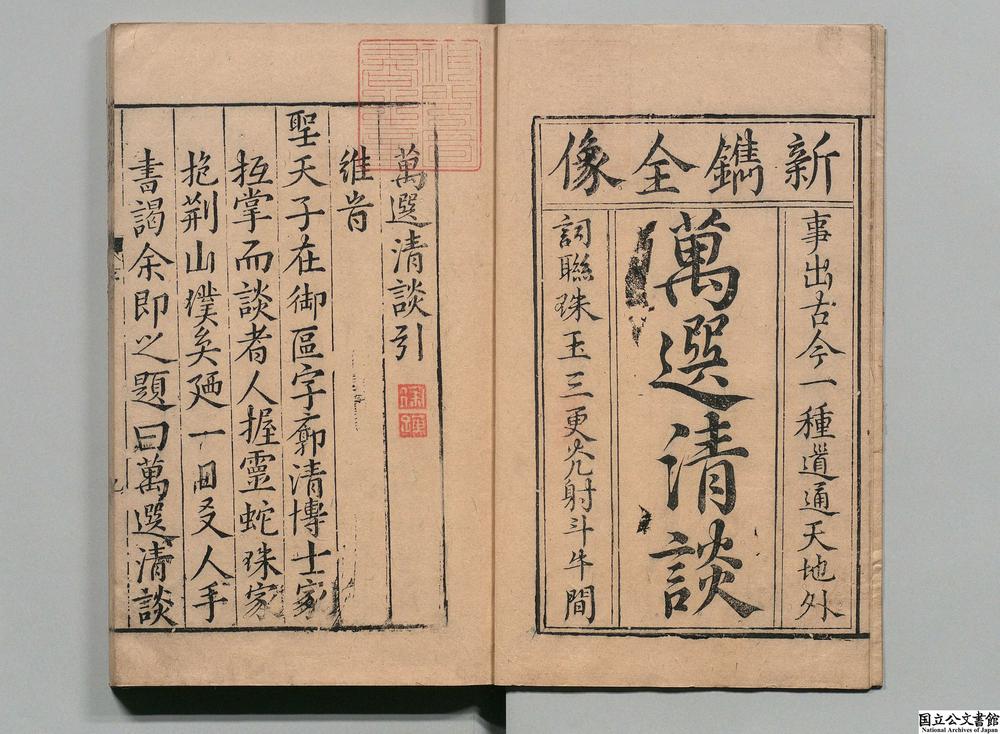 新鐫全像
事出古今一種道通天地外
萬選清談
詞聯珠玉三更光射斗牛間
萬選清談引
維時
聖天子在御區宇廓清博士家
抵掌而談者人握靈蛇珠家
抱荆山璞矣廼一日叉人手
書謁余即之題曰萬選清談
国立公文書館
National Archives of Japan